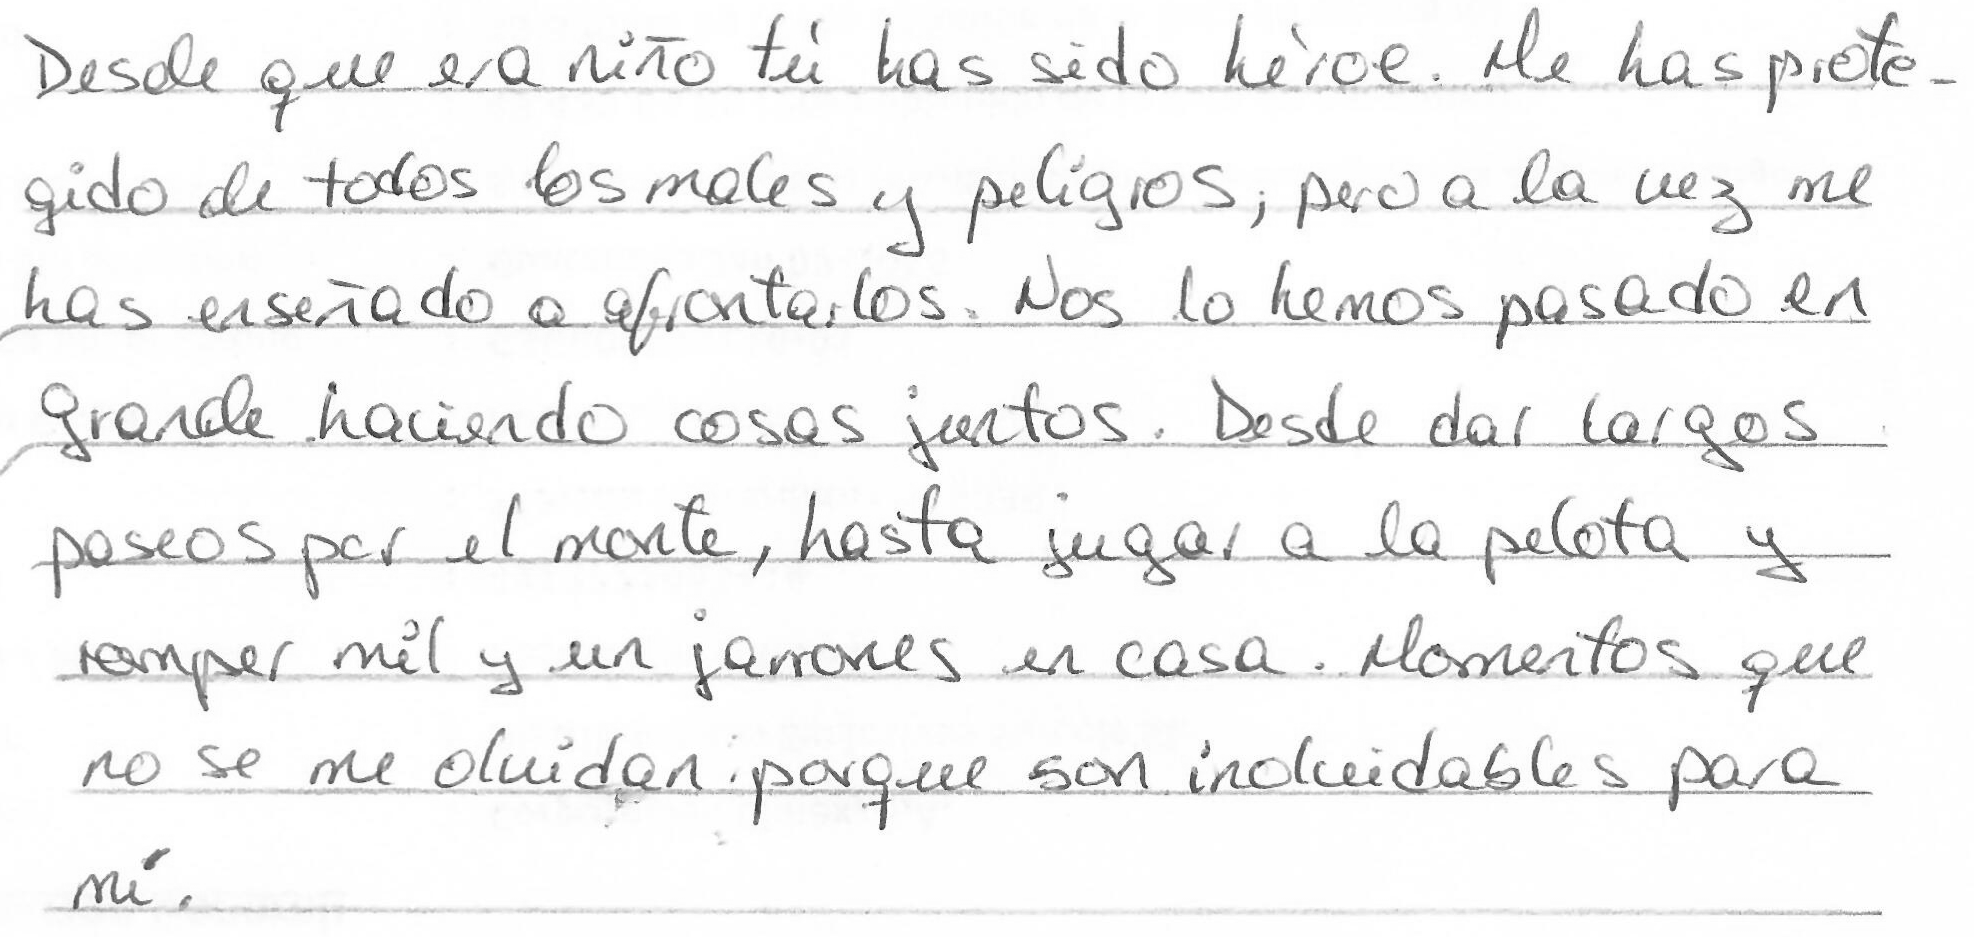 Desde que era niño tú has sido héroe. Me has prote-
gido de todos los males y peligros, pero a la vez me
has enseñado a afrontarlos. Nos lo hemos pasado en
grande haciendo cosas juntos. Desde dar largos
paseos por el monte, hasta jugar a la pelota y
romper mil y un jarrones en casa. Momentos que
no se me olvidan porque son inolvidables para
mí.